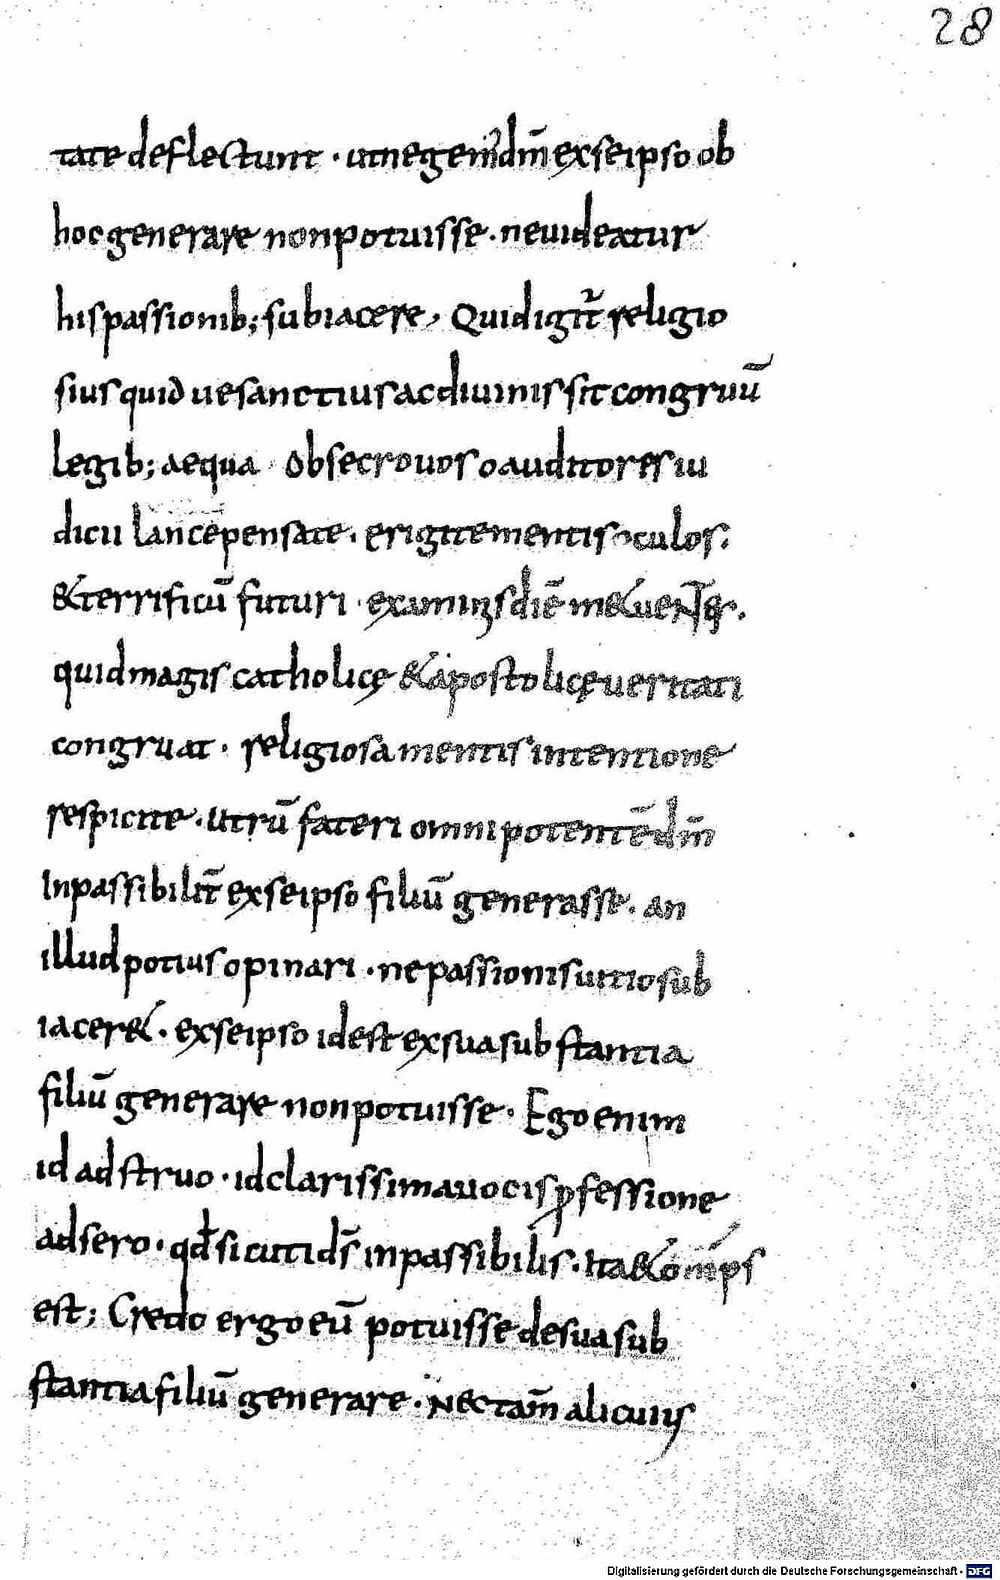 28
tate deflectunt · ut negent dm̄ ex se ipso ob
hoc generare non potuisse · ne uideatur
his passionib; subiacere, Quid igit̄ religio
sius quid ue sanctius ac diuinis sit congruū
legib; aequa · Obsecro uos o auditores iu
dicii lance pensate · erigite mentis oculos;
& terrificū futuri · examinis diē
quid magis catholicę & apostolicę ueritati
congruat · religiosa mentis intentione
respicite · Utrū fateri omnipotentē dm̄
Inpassibilit̄ ex se ipso filiū generasse · an
illud potius opinari · ne passionis uitio sub
iacer& · ex se ipso id est ex sua substantia
filiū generare non potuisse · Ego enim
id adstruo · id clarissima uocis ꝓfessione
adsero · qđ sicuti ds̄ inpassibilis · Ita & om̄ps
est; Credo ergo eū potuisse de sua sub
stantia filiū generare · Nec tam̄ alicuius
Digitalisierung gefördert durch die Deutsche Forschungsgemeinschaft - DFG